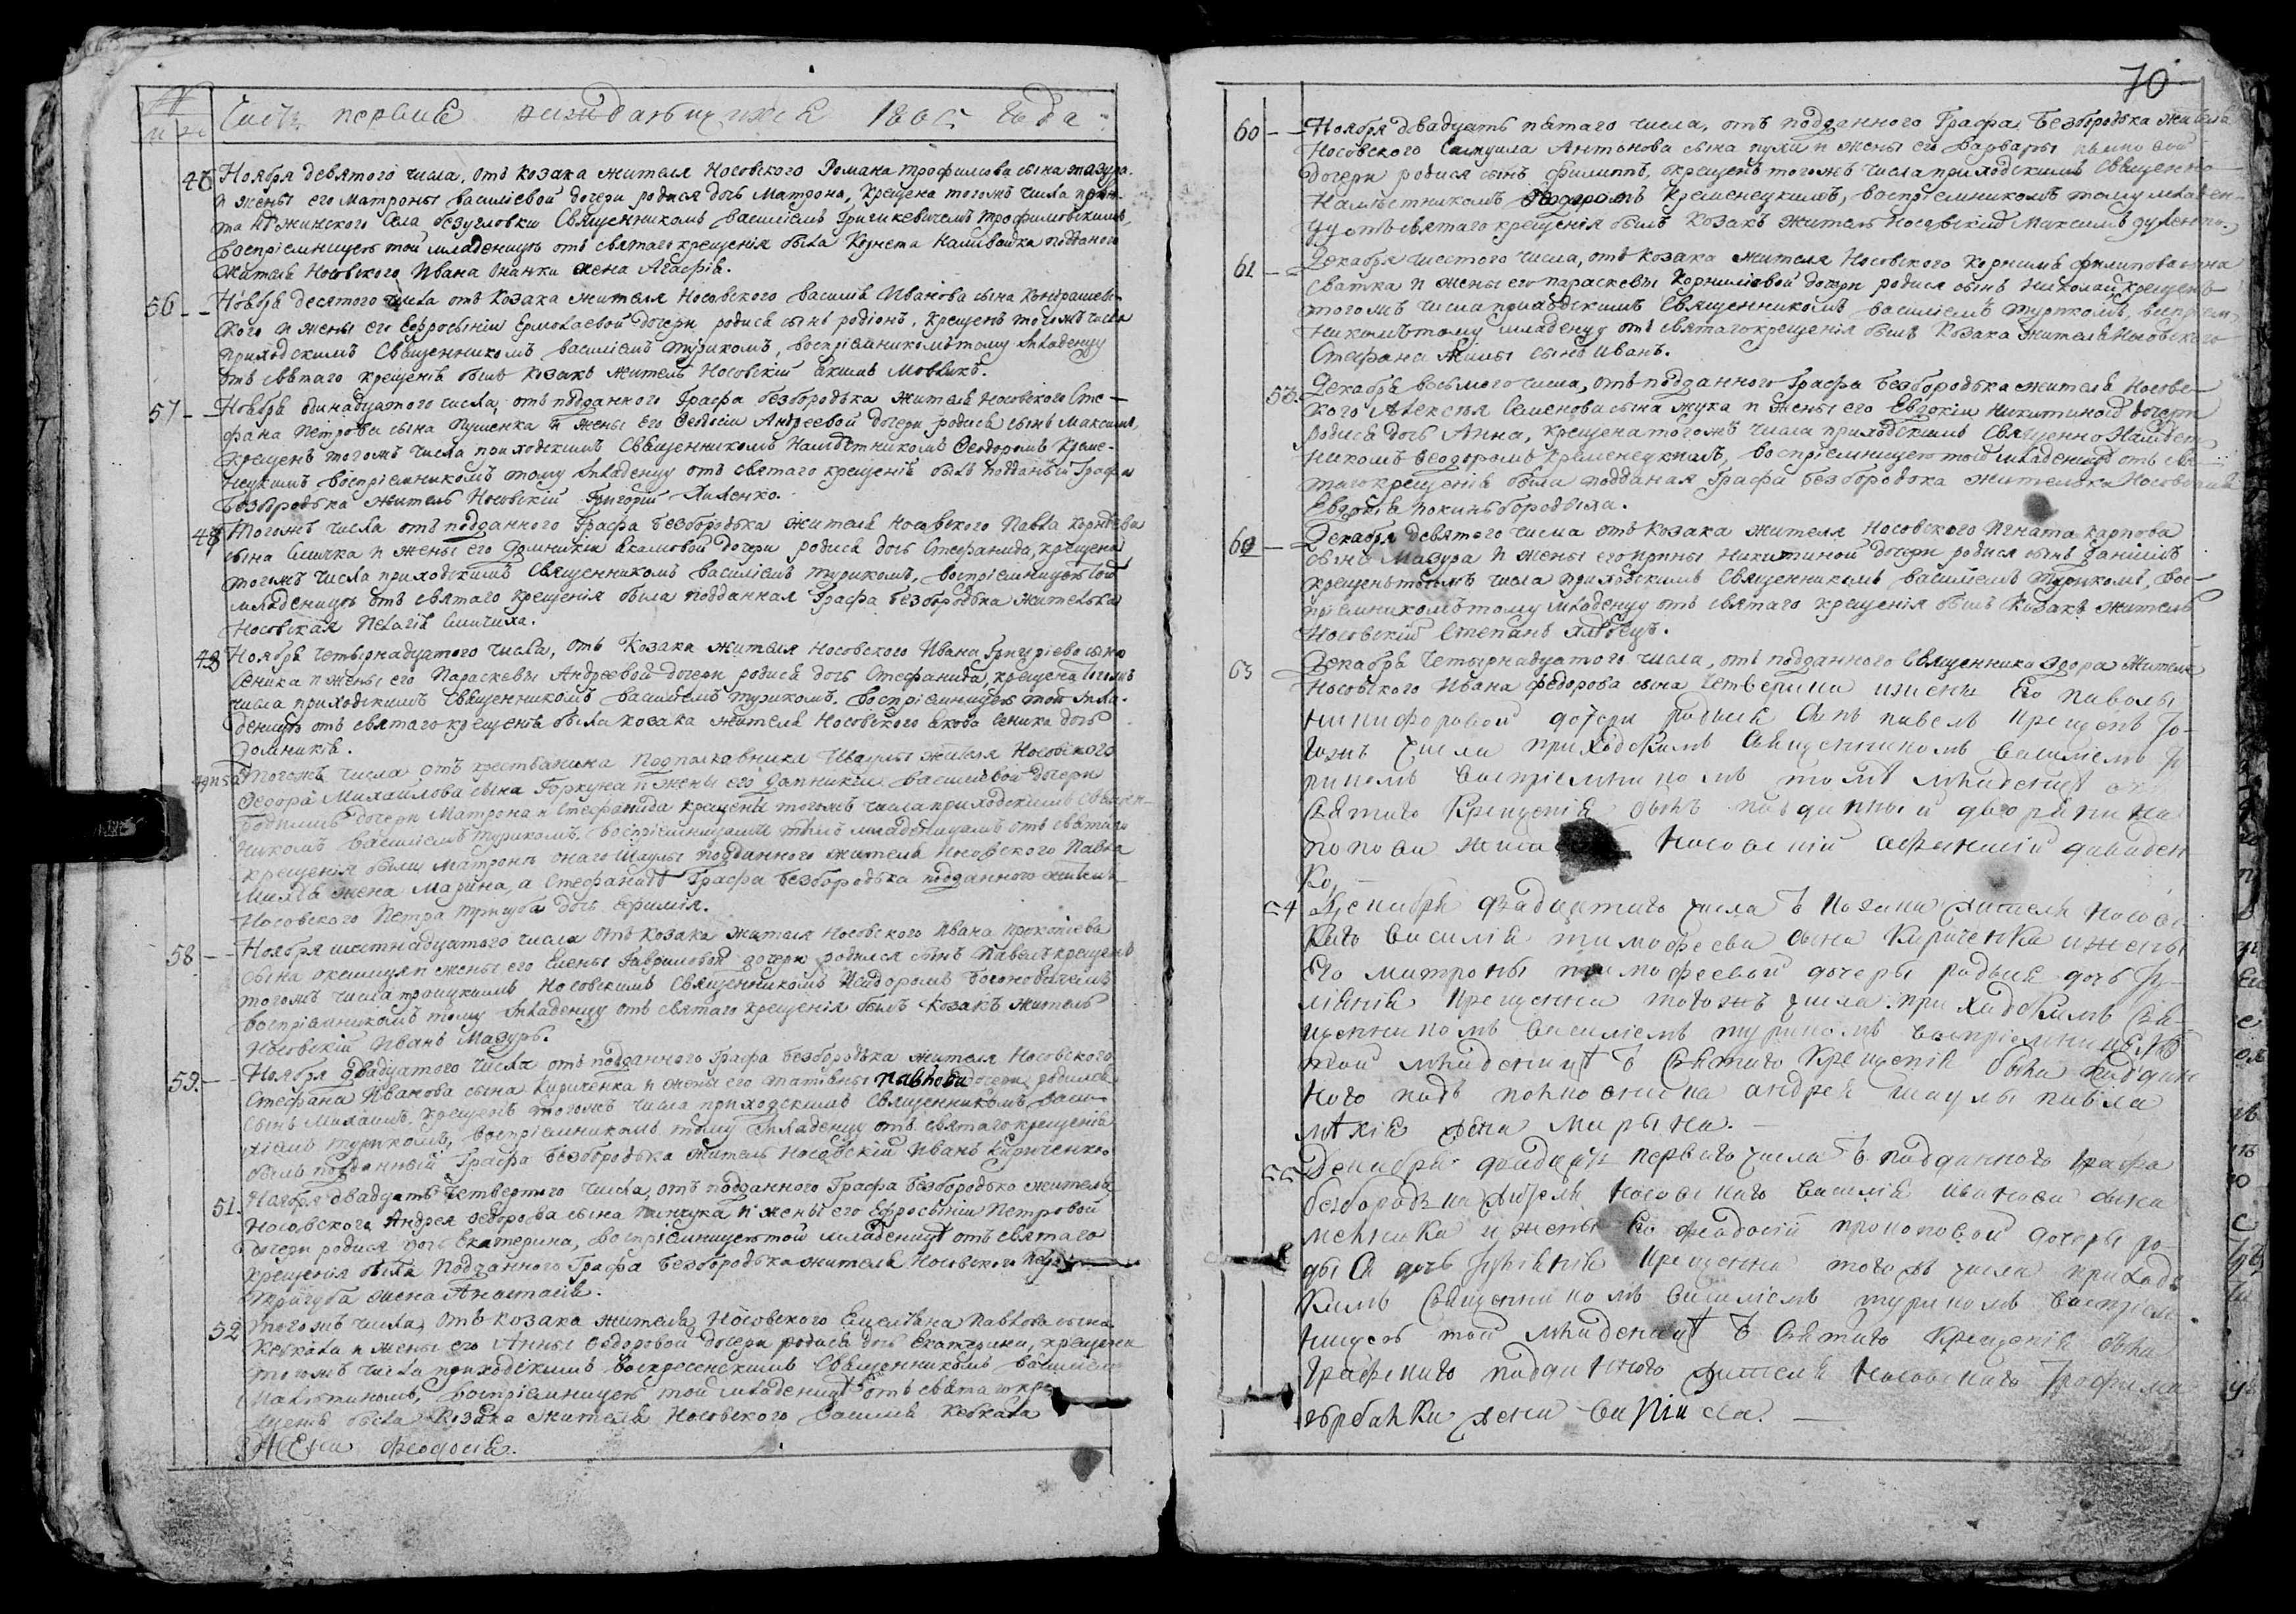 Часть первая раждающихся 1805 года
46 Ноября девятого числа, отъ козака жителя Носовского Романа Трофимова сына мазура
и жены его Матроны василіевой дочери родися дочь Матрона, крещена тогожъ числа
села безугловки Священникомъ василіемъ Григикевичемъ Трофимовскимъ,
воспріемницею той младеницѣ отъ святаго крещенія была Корнета подданого
жителя Носовского Ивана жена Агафія.
56 Ноября десятого числа отъ козака жителя Носовского василія Иванова сына Кондрашев-
кого и жены его Евфросыніи Ермолаевой дочери, родися сынъ родіонъ, крещенъ тогожъ числа
приходскимъ Священникомъ василіемъ Турикомъ, воспріемникомъ тому младенцу
отъ святаго крещенія былъ козакъ житель Носовскій Акимъ Моввикъ.
57 Ноября одинадцатого числа, отъ подданного Графа безбородька жителя Носовского Сте-
фана Петрова сына пушенка и жены его Феодосіи Андреевой дочери родися сынъ Максимъ,
крещенъ тогожъ числа приходскимъ Священникомъ Намѣстникомъ Феодоромъ Креме-
нецкимъ воспріемникомъ тому младенцу отъ святаго крещенія былъ подданый Графа
Безбородька житель Носовскій Григорій Яценко.
47 Тогожъ числа отъ подданного Графа Безбородька жителя Носовского Павла Корнѣева
сына Симчка и жены его Домникіи Екимовой дочери родися дочь Стефанида, крещена
тогожъ числа приходскимъ Священникомъ василіемъ Турикомъ, воспріемницею той
младеницѣ отъ святаго крещенія была подданная Графа безбородька жителька
Носовская Пелагія Симчиха.
48 Ноября четырнадцатого числа, отъ Козака жителя Носовского Ивана Григоріева сына
Сеника и жены его Параскевы Андреевой дочери родися дочь Стефанида, крещена тогожъ
числа приходскимъ Священникомъ василіемъ Турикомъ. воспріемницею той мла-
деницѣ отъ святаго крещенія была козака жителя Носовского Якова Сеника дочь
Домникія.
49 и 50 Тогожъ числа отъ крестьянина Подполковника Шаулы жителя Носовского
Феодора Михаилова сына Горкуна и жены его Дапникіи Василіевой дочери
родились дочери Матрона и Стефанида крещены тогожъ числа приходскимъ Священ-
никомъ василіемъ Турикомъ. воспріемницами тѣмъ младеницамъ отъ святаго
крещенія были Матронѣ онаго Шаулы подданого жителя Носовского Павла
жена Марина, а Стефанидѣ Графа Безбородька подданого жителя
Носовского Петра Тригуба дочь Ефимія.
58 Ноября шестнадцатого числа отъ козака жителя Носовского Ивана прокопіева
сына и жены его Елены Гавриловой дочери родился сынъ Павелъ крещенъ
тогожъ числа троицкимъ Носовскимъ Священникомъ Исидоромъ Богоновичемъ
воспріемникомъ тому младенцу отъ святаго крещенія былъ Козакъ житель
Носовскій Иванъ Мазуръ.
59 Ноября двадцатого числа отъ подданного Графа безбородька жителя Носовского
Стефана Иванова сына Кириченка и жены его татіяны Павловой дочери родился
сынъ Михаилъ, крещенъ тогожъ числа приходскимъ Священникомъ васи-
ліемъ Турикомъ, воспріемникомъ тому младенцу отъ святаго крещенія
былъ подданный Графа безбородька житель Носовскій Иванъ Кириченко
51 Ноября двадцать четвертого числа, отъ подданного Графа безбородько жителя
Носовского Андрея Федорова сына и жены его Ефросыніи Петровой
дочери родися дочь Екатерина, воспріемницею той младеницѣ отъ святаго
крещенія была Подданного Графа безбородька жителя Носовского Петра
тригуба жена Анастасія.
52 тогожъ числа, отъ козака жителя Носовского Емеліана Павлова сына
Кевкала и жены его Анны Федоровой дочери родися дочь Екатерина, крещена
тогожъ числа приходскимъ воскресенскимъ Священникомъ василіемъ
воспріемницею той младеницѣ отъ святаго кре-
щенія была Козака жителя Носовского василія Кевкала
жена феодосія.
70
60 Ноября двадцать пятаго числа, отъ подданного Графа Безбородька жителя
Носовского Самуила Антонова сына пухи и жены его варвары
дочери родися сынъ Филиппъ, окрещенъ тогожъ числа приходскимъ Священно
Намѣстникомъ Феодоромъ Кременецкимъ, воспріемникомъ тому младен-
цу отъ святаго крещенія былъ Козакъ житель Носовскій Максимъ
61 Декабря шестого числа, отъ козака жителя Носовского Корнилія филипова сына
Святка и жены его параскевы Корниліевой дочери родися сынъ Николай, крещенъ
тогожъ числа приходскимъ Священникомъ василіемъ Турикомъ, воспріем-
никомъ тому младенцу отъ святаго крещенія былъ козака жителя Носовского
Стефана сынъ Иванъ.
53 Декабря восьмого числа, отъ подданного Графа безбородька жителя Носовс-
кого Алексѣя Семенова сына жука и жены его Евдокіи Никитиной дочери
родися дочь Анна, крещена тогожъ числа приходскимъ Священно Намѣст-
никомъ Феодоромъ Кременецкимъ, воспріемницею той младеницѣ отъ свя-
таго крещенія была подданая Графа безбородока жителька Носовская
Евдокія покиньбородьиха.
62 Декабря девятого числа отъ козака жителя Носовского Игната Карпова
сына Мазура и жены его ирины Никитиной дочери родися сынъ Даніилъ
крещенъ тогожъ числа приходскимъ Священникомъ василіемъ Турикомъ, вос-
пріемникомъ тому младенцу отъ святаго крещенія былъ Козакъ житель
Носовскій Степанъ Хлѣбецъ.
63 Декабря четырнадцатого числа, отъ подданного Священника Ѳдора жителя
Носовского Ивана федорова сына Четверика и жены его паволы
никифоровой дочери родися сынъ павелъ крещенъ то-
гожъ числа приходскимъ Священникомъ василіемъ Ту-
рикомъ воспріемникомъ томѣ младенцѣ
святаго Крещенія былъ подданный дворянина
попова Носовскій афанасій давиден
ко.
54 Декабря двадцатого числа ѿ козака жителя носовс-
каго василія тимофеева сына Кириченка и жены
его матроны тимофеевой дочеры родыся дочь Іу-
ліянія Крещенна тогожъ числа приходскимъ Свя-
щенникомъ василіемъ туриком воспріемницею
той младеницѣ ѿ святаго Крещенія была поддан
ного подъ полковника андрея шаулы павла
жена марына.
55 Декабря двадцать первого числа ѿ подданного графа
безбородька жителя Носовскаго василія иванова сына
мелника и жены его феодосіи прокоповой дочеры ро-
дыся дочь Іуліянія Крещенна тогожъ числа приходс
кимъ Священникомъ василіемъ турикомъ воспріем-
ницею той младеницѣ ѿ Святаго Крещенія была
графского подданного жителя Носовскаго трофима
горбатки жена василіса.